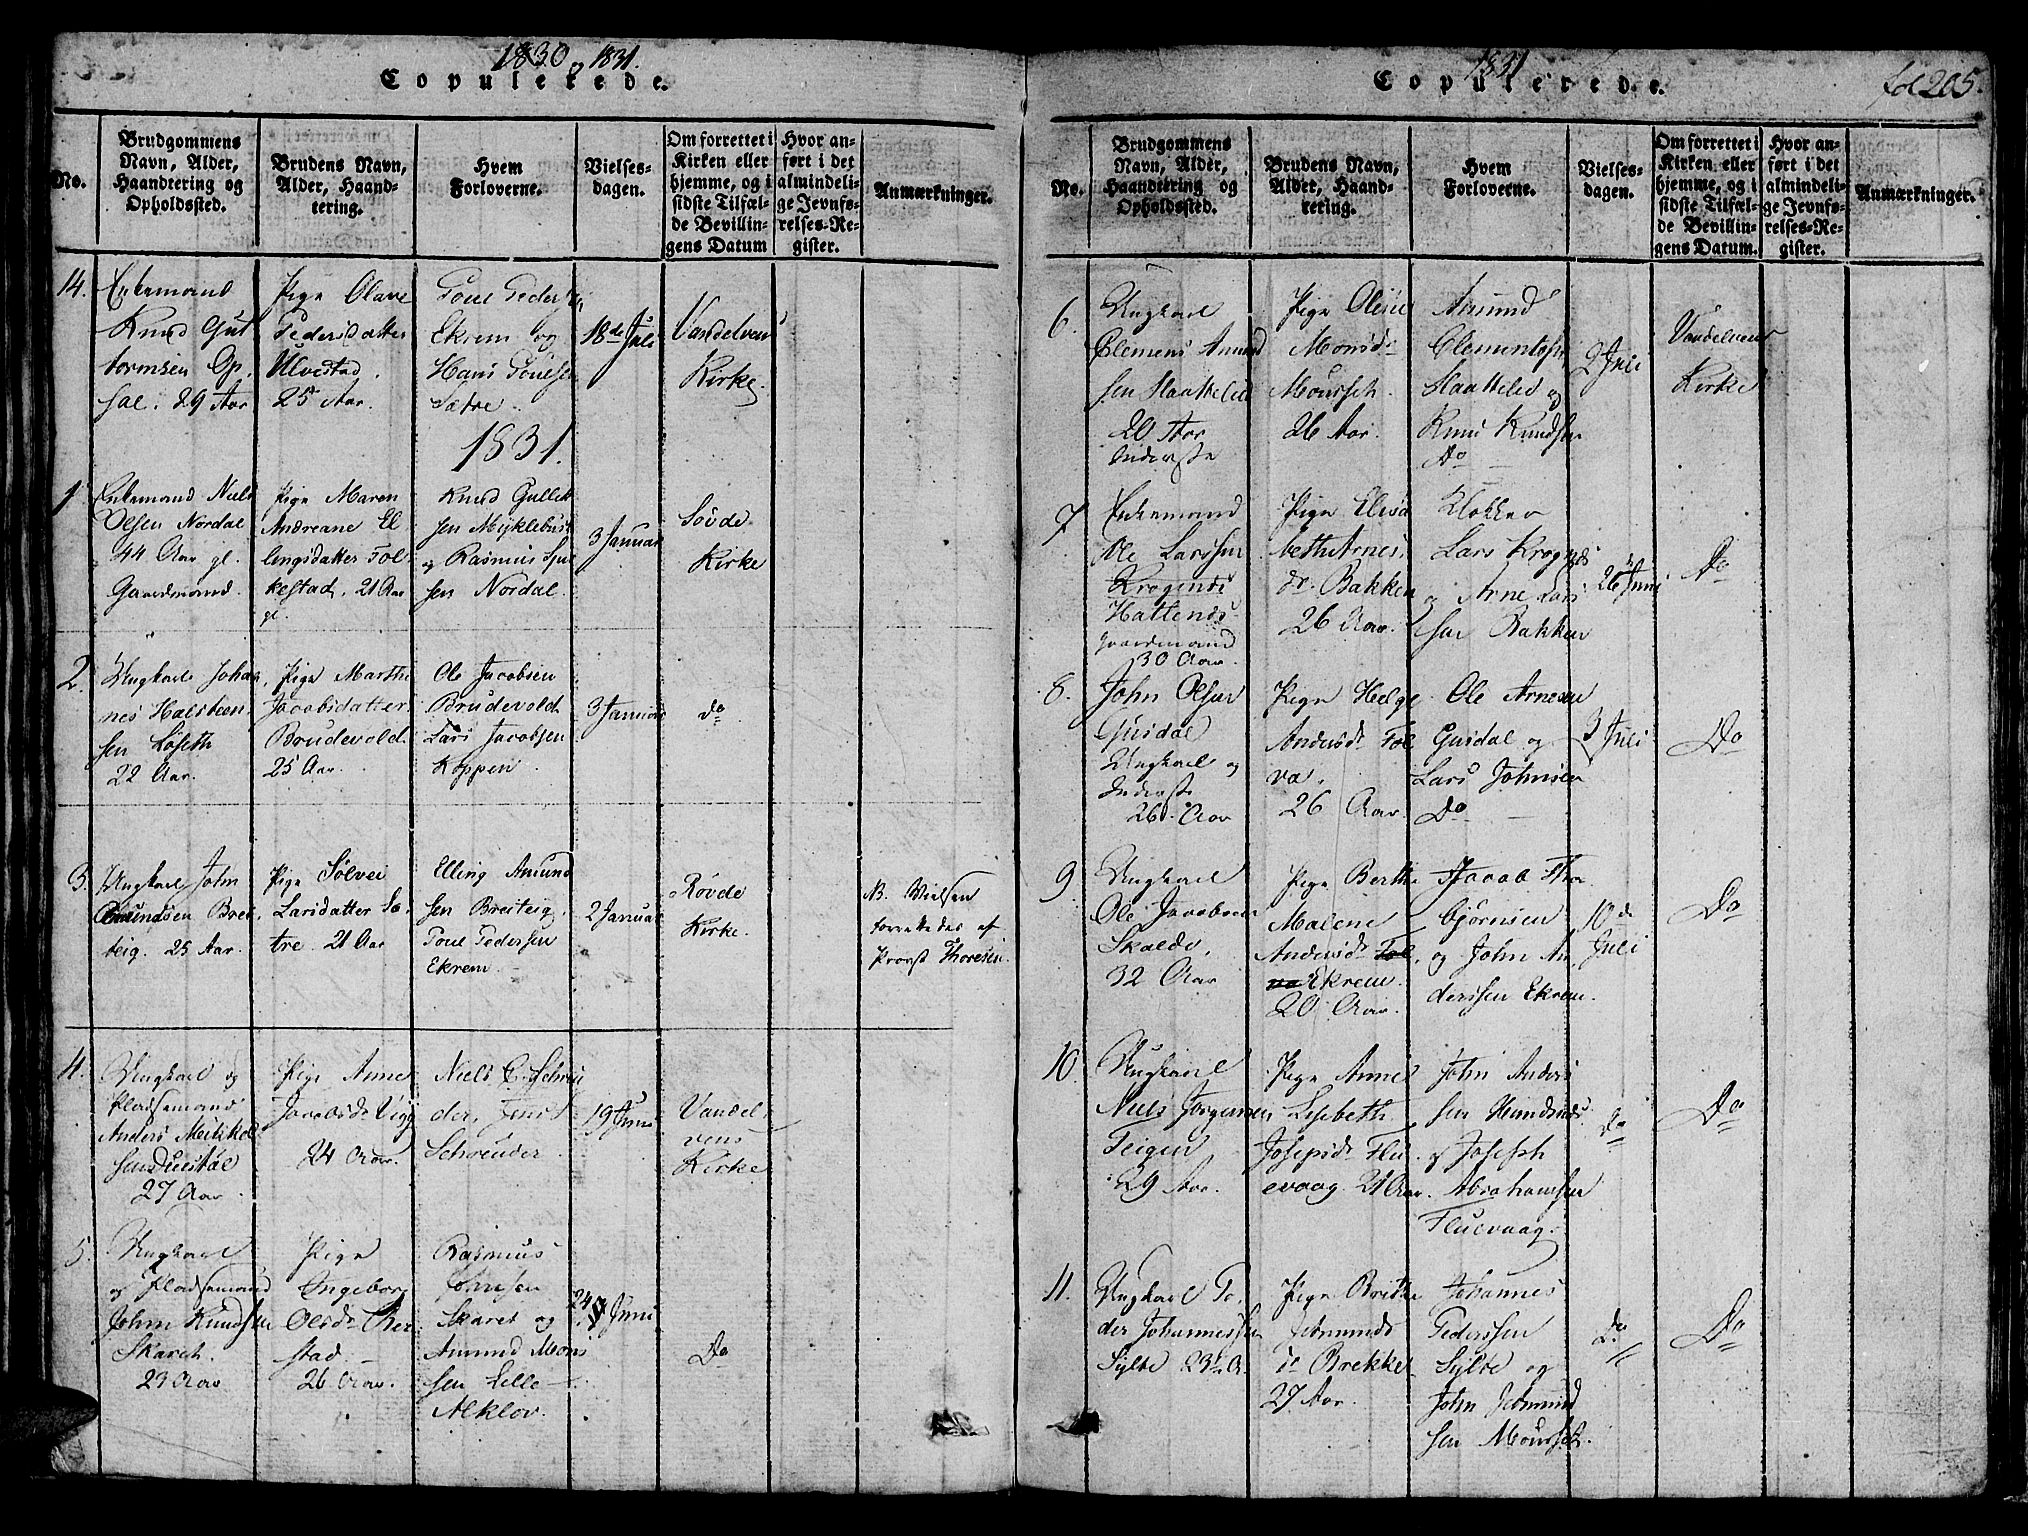 1830 og 1831.
Copulerede.
No.
Brudgommens
Navn, Alder,
Haandtering og
Opholdssted.
Brudens Navn,
Alder, Haand-
tering.
Hvem
Forloverne.
Vielses-
dagen.
Om forrettet i
Kirken eller
hjemme, og i
sidste Tilfæl-
de Bevillin-
gens Datum
Hvor an-
ført i det
almindeli-
ge Jevnfø-
relses-Re-
gister.
Anmærkninger.
14.
Enkemand
Knud Gut
tormsen Op
sal. 29 Aar
Pige Olave
Pedersdatter
Ulvestad.
25 Aar.
Poul Peders
Ekrem og
Hans Poulsen
Sætre.
18de Juli
Vandelvens
Kirke.
1831.
1
Enkemand Niels
Olsen Nordal
44 Aar gl.
Gaardmand.
Pige Maren
Andreane El
lingsdatter Fol
kestad. 21 Aar
gl.
Knud Gullik
sen Myklebust
og Rasmus
sen Nordal.
3 Januar
Søvde
Kirke
2.
Ungkarl Johan
nes Halsteen
sen Løseth
22 Aar.
Pige Marthe
Jacobsdatter
Brudevold
25 Aar.
Ole Jacobsen
Brudevold
Lars Jacobsen
Koppen
3 Januar
do
3.
Ungkarl John
Amundsen Brei
teig. 25 Aar.
Pige Sølvei
Larsdatter Sæ
tre. 21 Aar
Elling Amund
sen Breiteig,
Poul Pedersen
Ekrem.
2 Januar
Røvde
Kirke.
N. Vielsen
forrettedes af
Provst Thoresen.
4.
Ungkarl og
Pladsemand
Anders Mekkel
sen
27 Aar.
Pige Anne
Jacobsdr Vigg
24 Aar.
Niels C. Schreu
der, Jens
Schreuder.
19 Juni
Vandel
vens
Kirke
5.
Ungkarl
og Pladsemand
John Knudsen
Skaret.
23 Aar
Pige
Ingeborg
Olsdr Ther
stad
26 Aar.
Rasmus
Johnsen
Skaret og
Amund Mons
sen Lille
Alklov.
24 Juni
Do
1831
Copulerede.
fol 205.
No.
Brudgommens
Navn, Alder,
Haandtering og
Opholdssted.
Brudens Navn,
Alder, Haand-
tering.
Hvem
Forloverne.
Vielses-
dagen.
Om forrettet i
Kirken eller
hjemme, og i
sidste Tilfæl-
de Bevillin-
gens Datum.
Hvor an-
ført i det
almindeli-
ge Jevnfø-
relses-Re-
gister.
Anmærkninger.
6.
Ungkarl
Clemens Amund
sen Slaattelid
20 Aar
Inderste
Pige Oline
Monsdr
Mourseth.
26 Aar.
Amund
Clementsen
Slaattelid og
Knud Knudsen
Do
2 Juli
Vandelvens
Kirke
7
Enkemand
Ole Larssen
Krogends
Hattenes
Gaardmand
30 Aar.
Pige Elisa
beth Arnes
dr. Bakken
26 Aar.
Klokker
Lars Krognæs
og Arne Lars
sen Bakken
26 Juni
Do
8.
John Olsen
Gusdal
Ungkarl og
Inderste
26 Aar
Pige Helge
Andersdr Fol
va.
26 Aar.
Ole Arnesen
Gusdal og
Lars Johnsen
Do
3 Juli
Do
9
Ungkarl
Ole Jacobsen
Skalde,
32 Aar
Pige Berthe
Malene
Andersdr Fol
va Ekrem.
20 Aar.
Jacob Thor
bjørnsen
og John An
derssen Ekrem.
10de
Juli
Do
10.
Ungkarl
Niels Jørgensen
Teigen
29 Aar.
Pige Anne
Lisebeth
Josepsdr Flu
evaag. 21 Aar.
John Anders
sen Hundsnæs
og Joseph
Abrahamsen
Fluevaag.
do
Do
11.
Ungkarl Pe
der Johannessen
Sylte 23½ A
Pige Brithe
Jetmunds
dr Brekke
27 Aar.
Johannes
Pederssen
Sylte og
John Jetmund
sen Mourseth.
do
Do